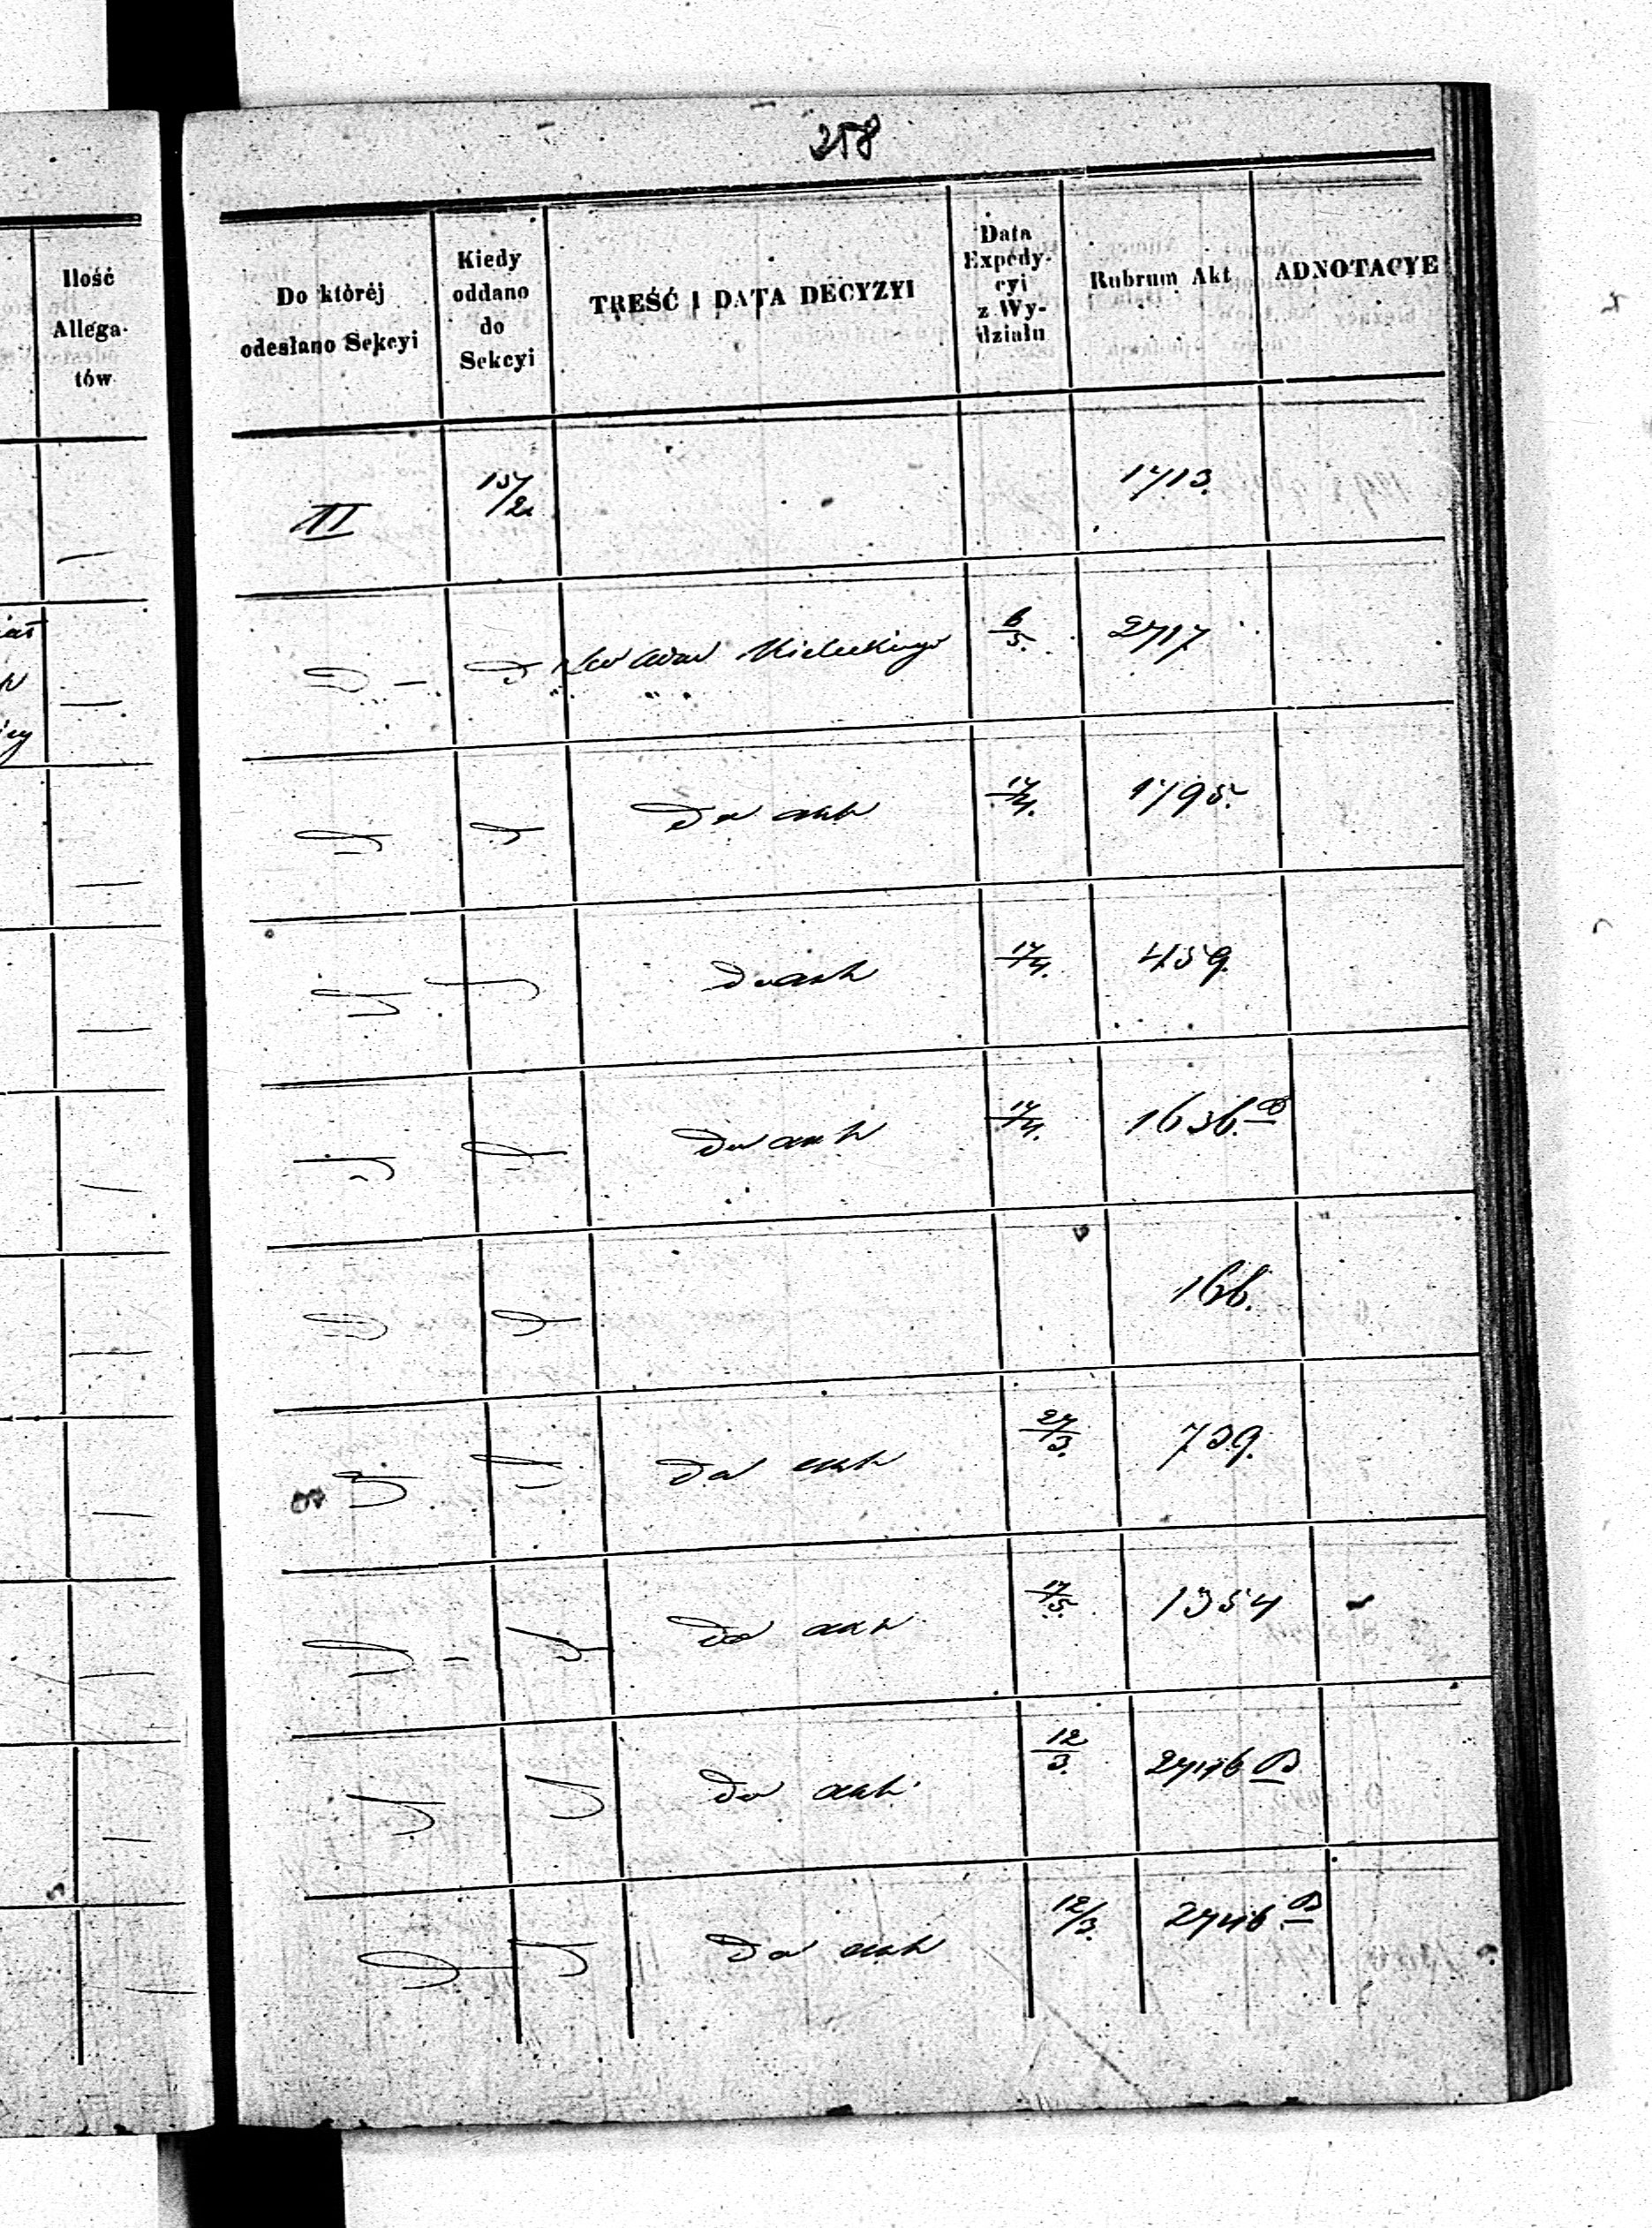 258
Ilość
Allega-
tów
Do któréj
odesłano Sekcyi
Kiedy
oddano
do
Sekcyi
TREŚĆ I DATA DECYZYI
Data
Expedy-
cyi
z Wy-
działu
Rubrum Akt
ADNOTACYE
III 15/2 1713.
6/5. 2717
Do akt 17/4. 1795.
Do akt 17/4. 459.
Do akt 17/4. 1636. B
166.
Do akt 27/3. 739.
Do akt 17/5. 1354
Do akt 12/3. 2746 B
Do akt 12/3. 2746 B